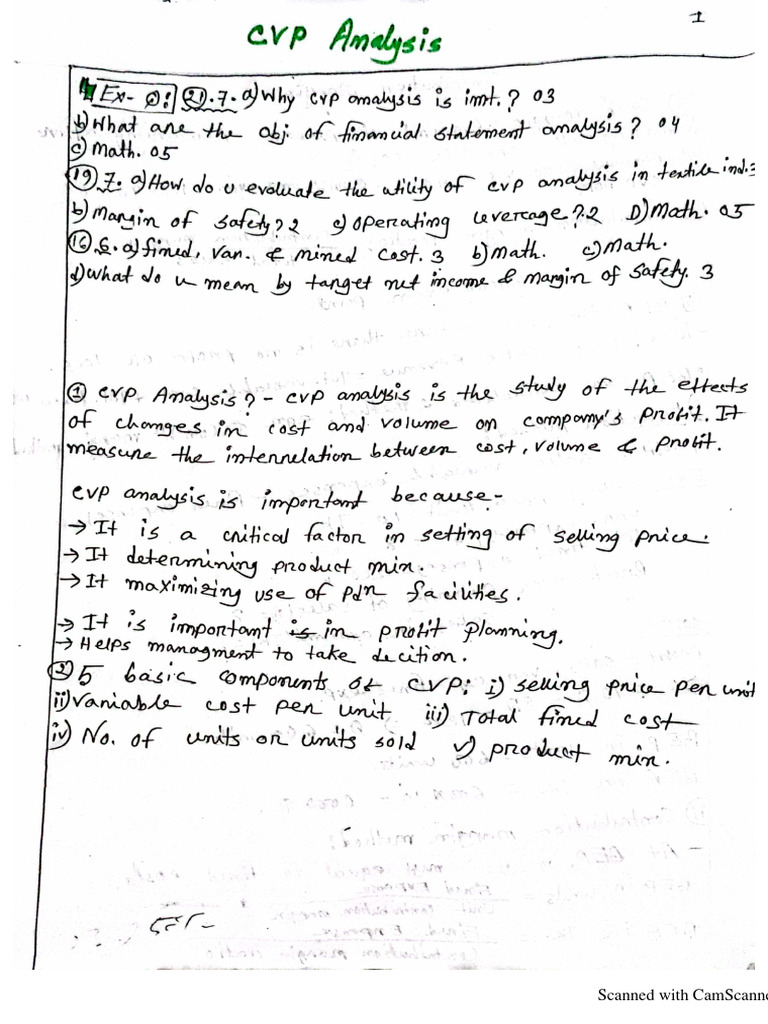 1
CVP Analysis
Ex- Q: 21.7. a) Why CVP analysis is imt.? 03
b) What are the obj. of financial statement analysis? 04
c) Math. 05
19 7. a) How do u evaluate the utility of CVP analysis in textile ind:
b) Margin of safety? 2 c) Operating leverage? 2 D) Math. 05
16 6. a) fixed, var. & mixed cost. 3 b) Math. c) Math.
d) What do u mean by target net income & margin of safety. 3
① CVP Analysis? - CVP analysis is the study of the effects
of changes in cost and volume on company's profit. It
measure the interrelation between cost, volume & profit.
CVP analysis is important because-
→ It is a critical factor in setting of selling price.
→ It determining product mix.
→ It maximizing use of pdn facilities.
→ It is important is in profit planning.
→ Helps managment to take decition.
② 5 basic components of CVP: i) selling price per unit
ii) variable cost per unit iii) Total fixed cost
iv) No. of units or units sold v) product mix.
Scanned with CamScanne